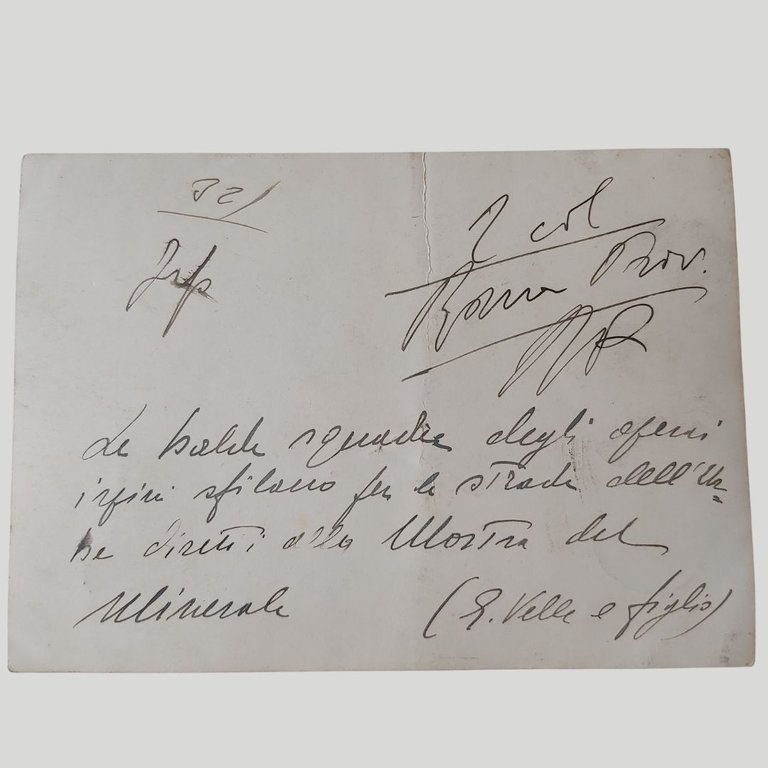 321
2 col
Roma Prov.
Le balde squadre degli operai
irpini sfilano per le strade dell'Ur=
be diretti alla Mostra del
Minerale
(E. Velle e figlio)